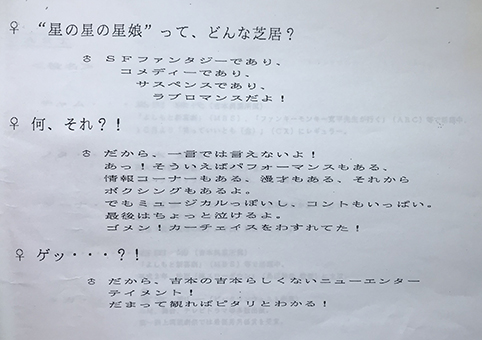 ♀ “星の星の星娘”って、どんな芝居？
♂ ＳＦファンタジーであり、
コメディーであり、
サスペンスであり、
ラブロマンスだよ！
♀ 何、それ？！
♂ だから、一言では言えないよ！
あっ！そういえばパフォーマンスもある、
情報コーナーもある、漫才もある、それから
ボクシングもあるよ。
でもミュージカルっぽいし、コントもいっぱい。
最後はちょっと泣けるよ。
ゴメン！カーチェイスをわすれてた！
♀ ゲッ・・・？！
♂ だから、吉本の吉本らしくないニューエンター
テイメント！
だまって観ればピタリとわかる！